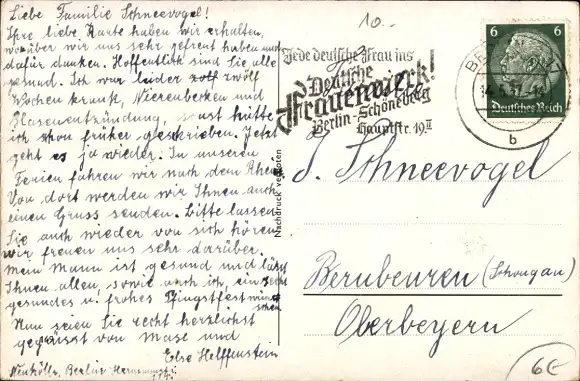 Liebe Familie Schneevogel!
Ihre liebe Karte haben wir erhalten,
worüber wir uns sehr gefreut haben und
dafür danken. Hoffentlich sind Sie alle
gesund. Ich war leider zwölf
Wochen krank, Nierenbecken und
Blasenentzündung, sonst hätte
ich schon früher geschrieben. Jetzt
geht es ja wieder. In unseren
Ferien fahren wir nach dem Rhein
Von dort werden wir Ihnen auch
einen Gruss senden. Bitte lassen
Sie auch wieder von sich hören
wir freuen uns sehr darüber.
Mein Mann ist gesund und läßt
Ihnen allen, sowie auch ich, ein recht
gesundes u. frohes Pfingstfest wün-
schen.
Nun seien Sie recht herzlichst
gegrüsst von Maxe und
Else Helffenstein
Neukölln, Berlin
10.-
Jede deutsche Frau ins
Deutsche
Frauenwerk!
Berlin-Schöneberg
Hauptstr. 19 II
6 6
Deutsches Reich
b
Nachdruck verboten
Schneevogel
Bernbeuren (Schongau)
Oberbeyern
6€